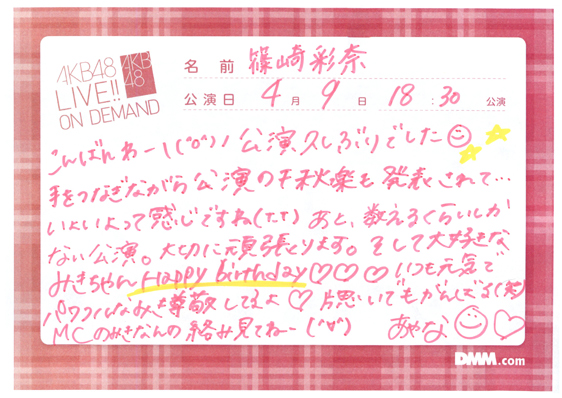 AKB48
LIVE!!
ON DEMAND
AKB
48
名前 篠崎彩奈
公演日 4月9日 18:30 公演
こんばんわー!(^o^)ノ 公演久しぶりでした☺
手をつなぎながら公演の千秋楽も発表されて…
いよいよって感じですね(T.T) あと、数えるくらいしか
ない公演。大切に頑張ります。そして大好きな
みきちゃん Happy birthday♡♡♡ いつも元気で
パワフルなみき尊敬してるよ♡ 片思いでもがんばる(笑)
MCのみきなんの絡み見てねー (^∀^) あやな☺♡
DMM.com